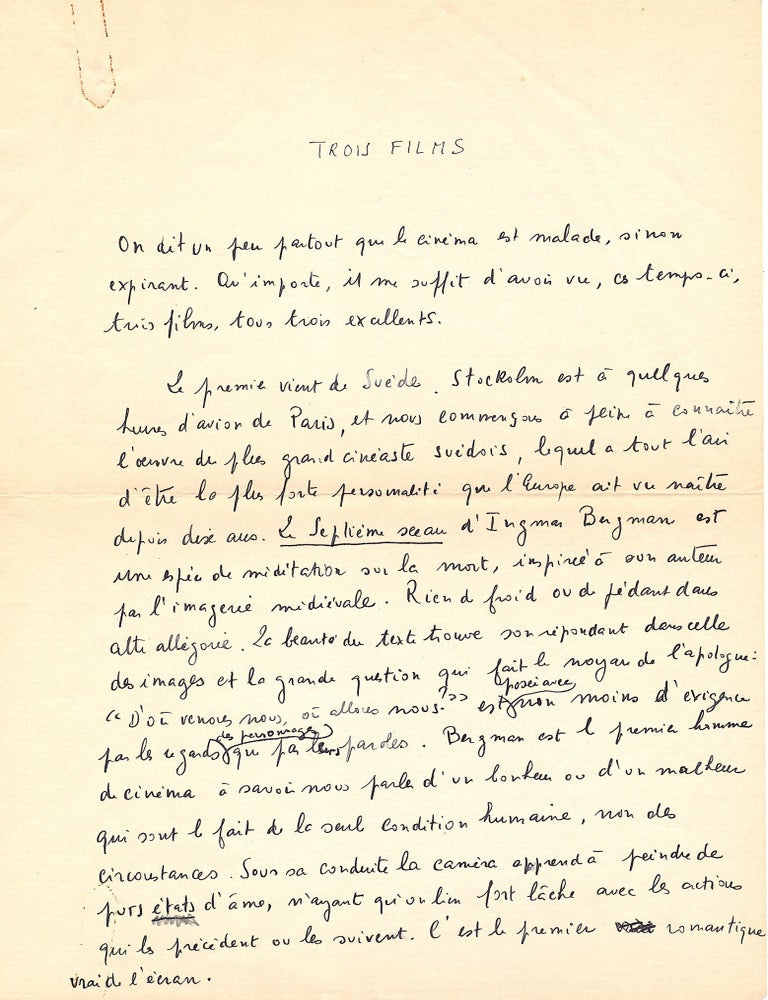 TROIS FILMS
On dit un peu partout que le cinéma est malade, sinon
expirant. Qu'importe, il me suffit d'avoir vu, ces temps-ci,
trois films, tous trois excellents.
Le premier vient de Suède. Stockolm est à quelques
heures d'avion de Paris, et nous commençons à peine à connaître
l'œuvre du plus grand cinéaste suédois, lequel a tout l'air
d'être la plus forte personnalité que l'Europe ait vu naître
depuis dix ans. Le Septième sceau d'Ingmar Bergman est
une espèce de méditation sur la mort, inspirée à son auteur
par l'imagerie médiévale. Rien de froid ou de pédant dans
cette allégorie. La beauté du texte trouve son répondant dans celle
des images et la grande question qui fait le noyau de l'apologue :
"D'où venons nous, où allons nous ?" est posée avec non moins d'exigence
par les regards des personnages que par leurs paroles. Bergman est le premier homme
de cinéma à savoir nous parler d'un bonheur ou d'un malheur
qui sont le fait de la seule condition humaine, non des
circonstances. Sous sa conduite la caméra apprend à peindre de
purs états d'âme, n'ayant qu'un lien fort lâche avec les actions
qui les précèdent ou les suivent. C'est le premier romantique
vrai de l'écran.